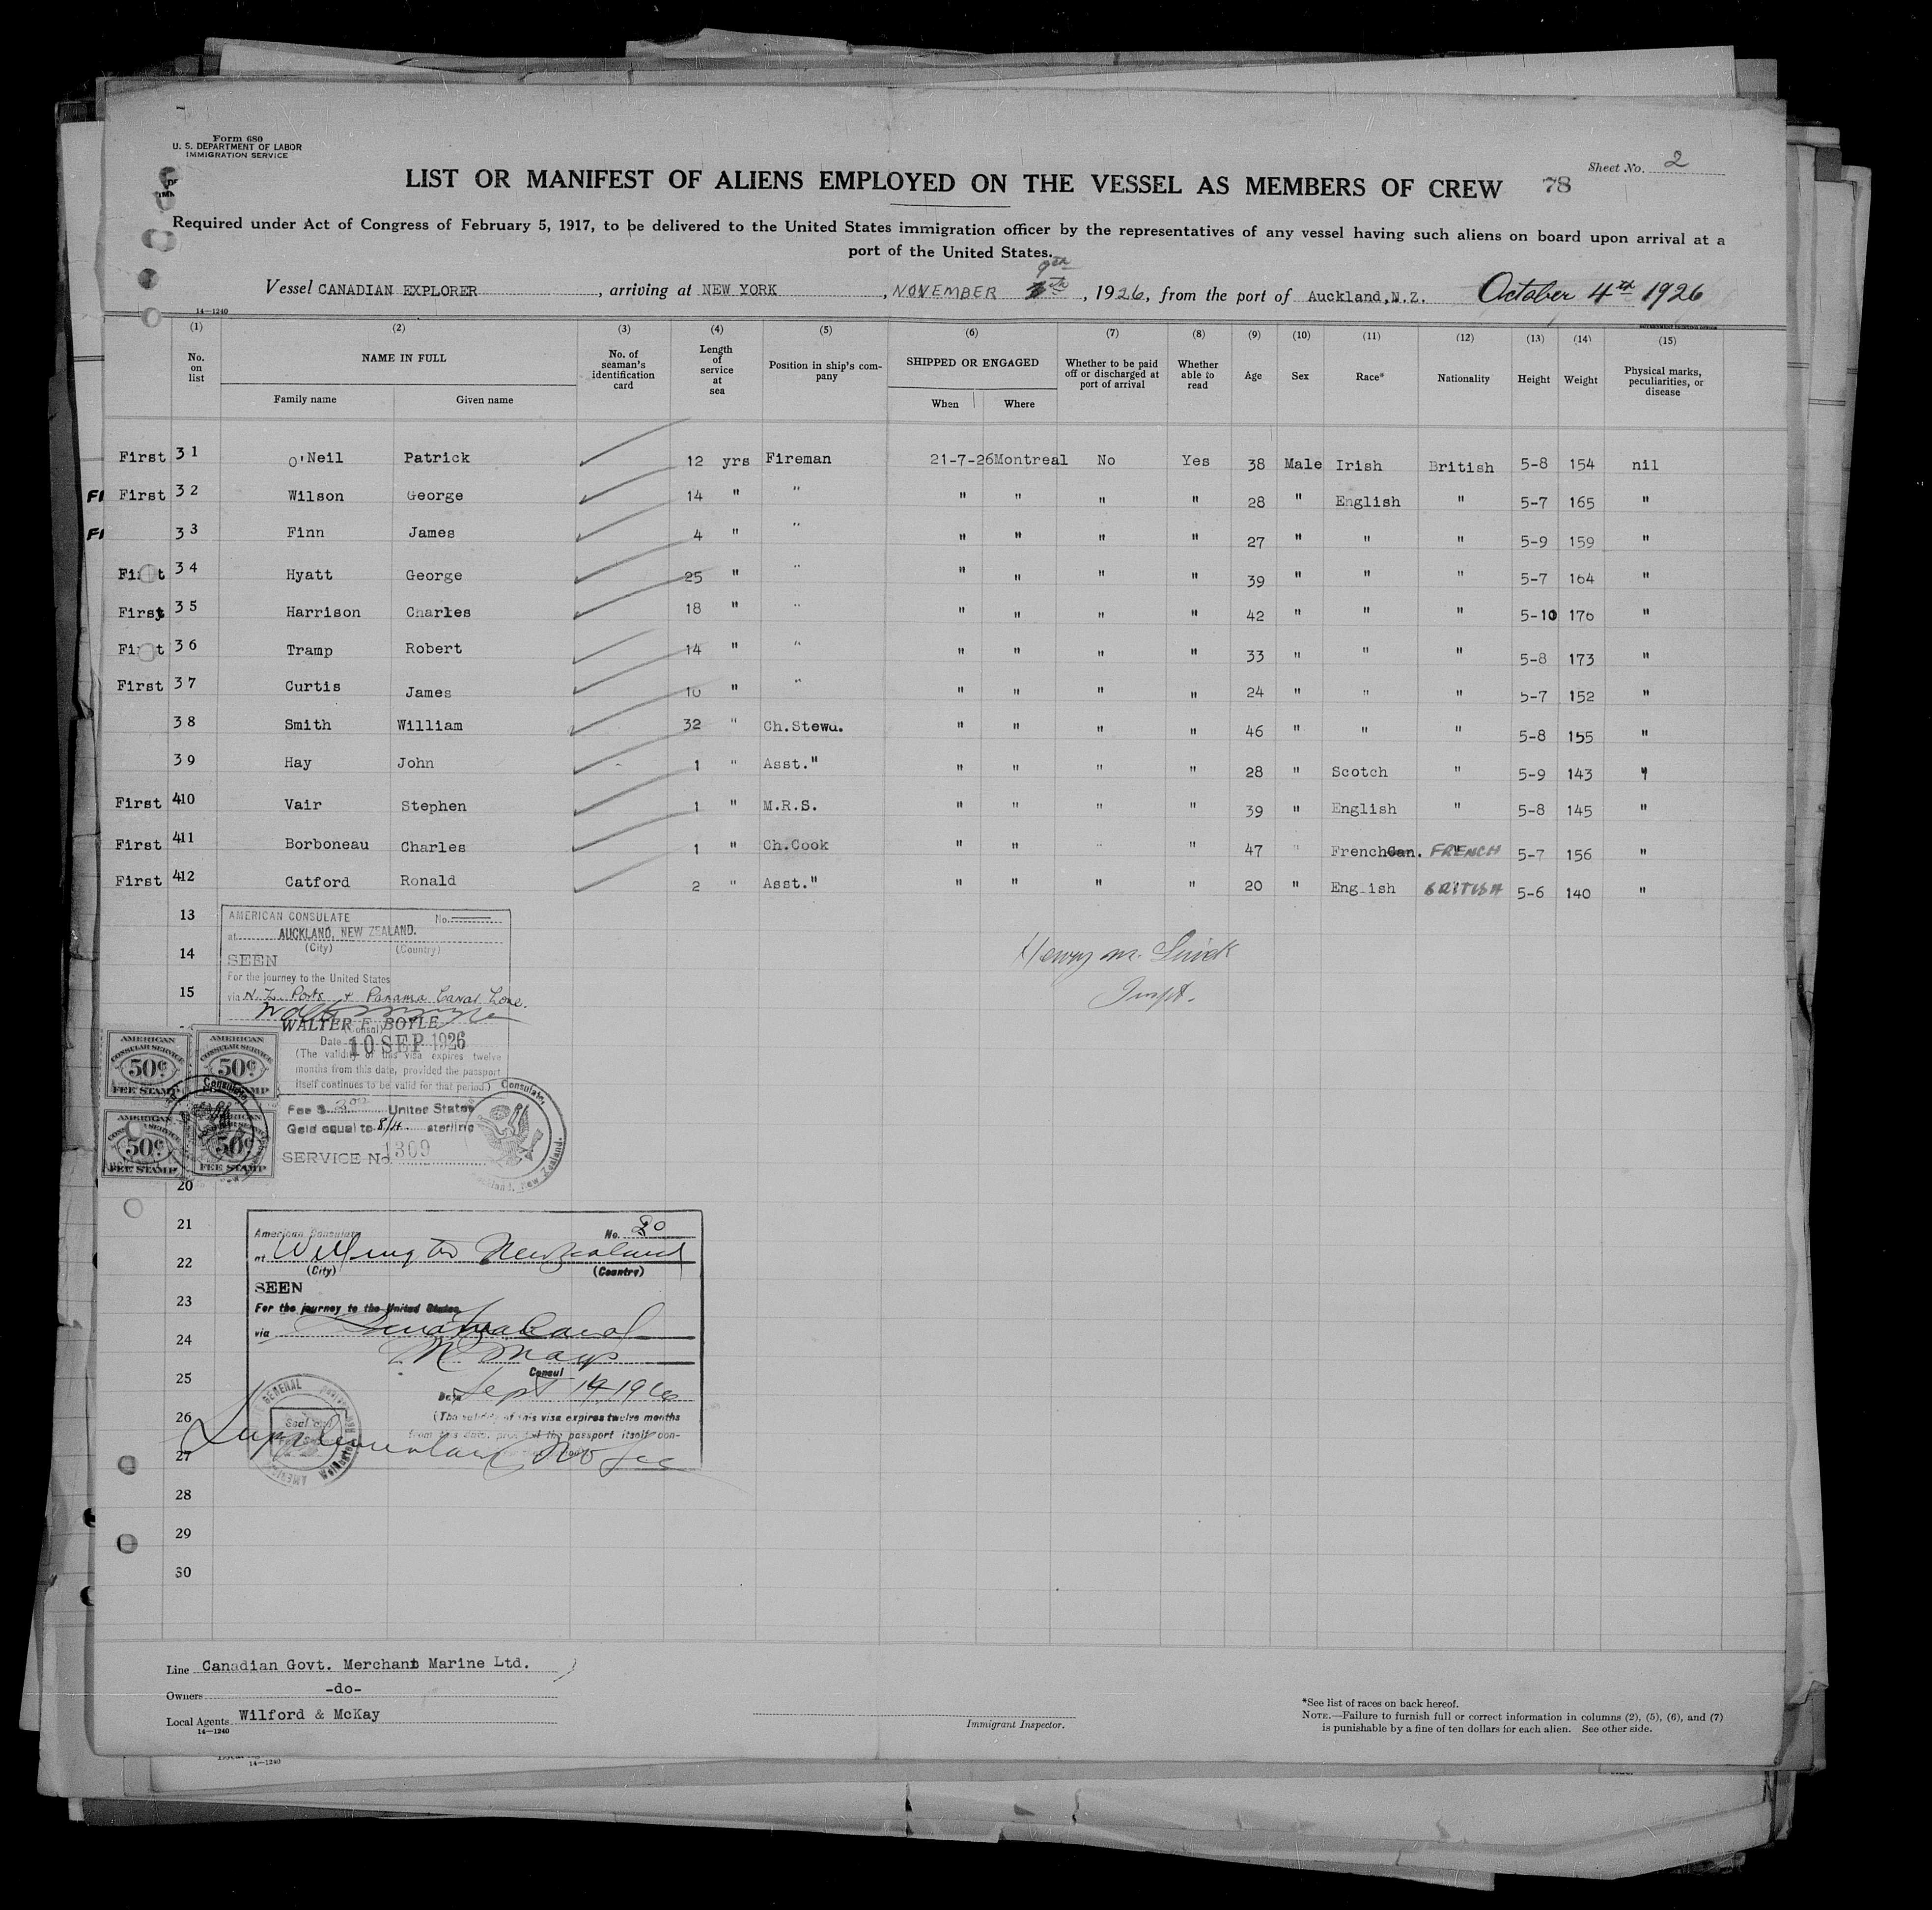 Form 680
U. S. DEPARTMENT OF LABOR
IMMIGRATION SERVICE
Sheet No. 2
LIST OR MANIFEST OF ALIENS EMPLOYED ON THE VESSEL AS MEMBERS OF CREW 78
Required under Act of Congress of February 5, 1917, to be delivered to the United States immigration officer by the representatives of any vessel having such aliens on board upon arrival at a
port of the United States.
9th
Vessel CANADIAN EXPLORER, arriving at NEW YORK, NOVEMBER th, 1926, from the port of Auckland, N.Z. October 4th 1926
14—1240
(1) (2) (3) (4) (5) (6) (7) (8) (9) (10) (11) (12) (13) (14) (15)
No. on list NAME IN FULL No. of seaman's identification card Length of service at sea Position in ship's company SHIPPED OR ENGAGED Whether to be paid off or discharged at port of arrival Whether able to read Age Sex Race* Nationality Height Weight Physical marks, peculiarities, or disease
Family name Given name When Where
First 31 O'Neil Patrick 12 yrs Fireman 21-7-26 Montreal No Yes 38 Male Irish British 5-8 154 nil
First 32 Wilson George 14 " " " " " " 28 " English " 5-7 165 "
33 Finn James 4 " " " " " " 27 " " " 5-9 159 "
First 34 Hyatt George 25 " " " " " " 39 " " " 5-7 164 "
First 35 Harrison Charles 18 " " " " " " 42 " " " 5-10 170 "
First 36 Tramp Robert 14 " " " " " " 33 " " " 5-8 173 "
First 37 Curtis James 10 " " " " " " 24 " " " 5-7 152 "
38 Smith William 32 " Ch.Stewd. " " " " 46 " " " 5-8 155 "
39 Hay John 1 " Asst." " " " " 28 " Scotch " 5-9 143 "
First 410 Vair Stephen 1 " M.R.S. " " " " 39 " English " 5-8 145 "
First 411 Borboneau Charles 1 " Ch.Cook " " " " 47 " French Can. FRENCH 5-7 156 "
First 412 Catford Ronald 2 " Asst." " " " " 20 " English BRITISH 5-6 140 "
13
14
15
20
21
22
23
24
25
26
27
28
29
30
AMERICAN CONSULATE No.
at AUCKLAND, NEW ZEALAND.
(City) (Country)
SEEN
For the journey to the United States
via N.Z. Ports + Panama Canal Zone.
WALTER F. BOYLE
(Consul)
Date 10 SEP 1926
(The validity of this visa expires twelve
months from this date, provided the passport
itself continues to be valid for that period.)
Fee $ 2.00 United States
Gold equal to 8/4 sterling
SERVICE No. 1309
AMERICAN CONSULAR SERVICE 50¢ FEE STAMP
AMERICAN CONSULAR SERVICE 50¢ FEE STAMP
AMERICAN CONSULAR SERVICE 50¢ FEE STAMP
AMERICAN CONSULAR SERVICE 50¢ FEE STAMP
Henry M.
Inspt.
American Consulate No. 20
at Wellington New Zealand
(City) (Country)
SEEN
For the journey to the United States
via Canal
Consul
Date Sept 14 1926
(The validity of this visa expires twelve months
from this date, provided the passport itself con-
Supplementary No fee
Line Canadian Govt. Merchant Marine Ltd.
Owners -do-
Local Agents Wilford & McKay
14—1240
Immigrant Inspector.
*See list of races on back hereof.
NOTE.—Failure to furnish full or correct information in columns (2), (5), (6), and (7)
is punishable by a fine of ten dollars for each alien. See other side.
14—1240